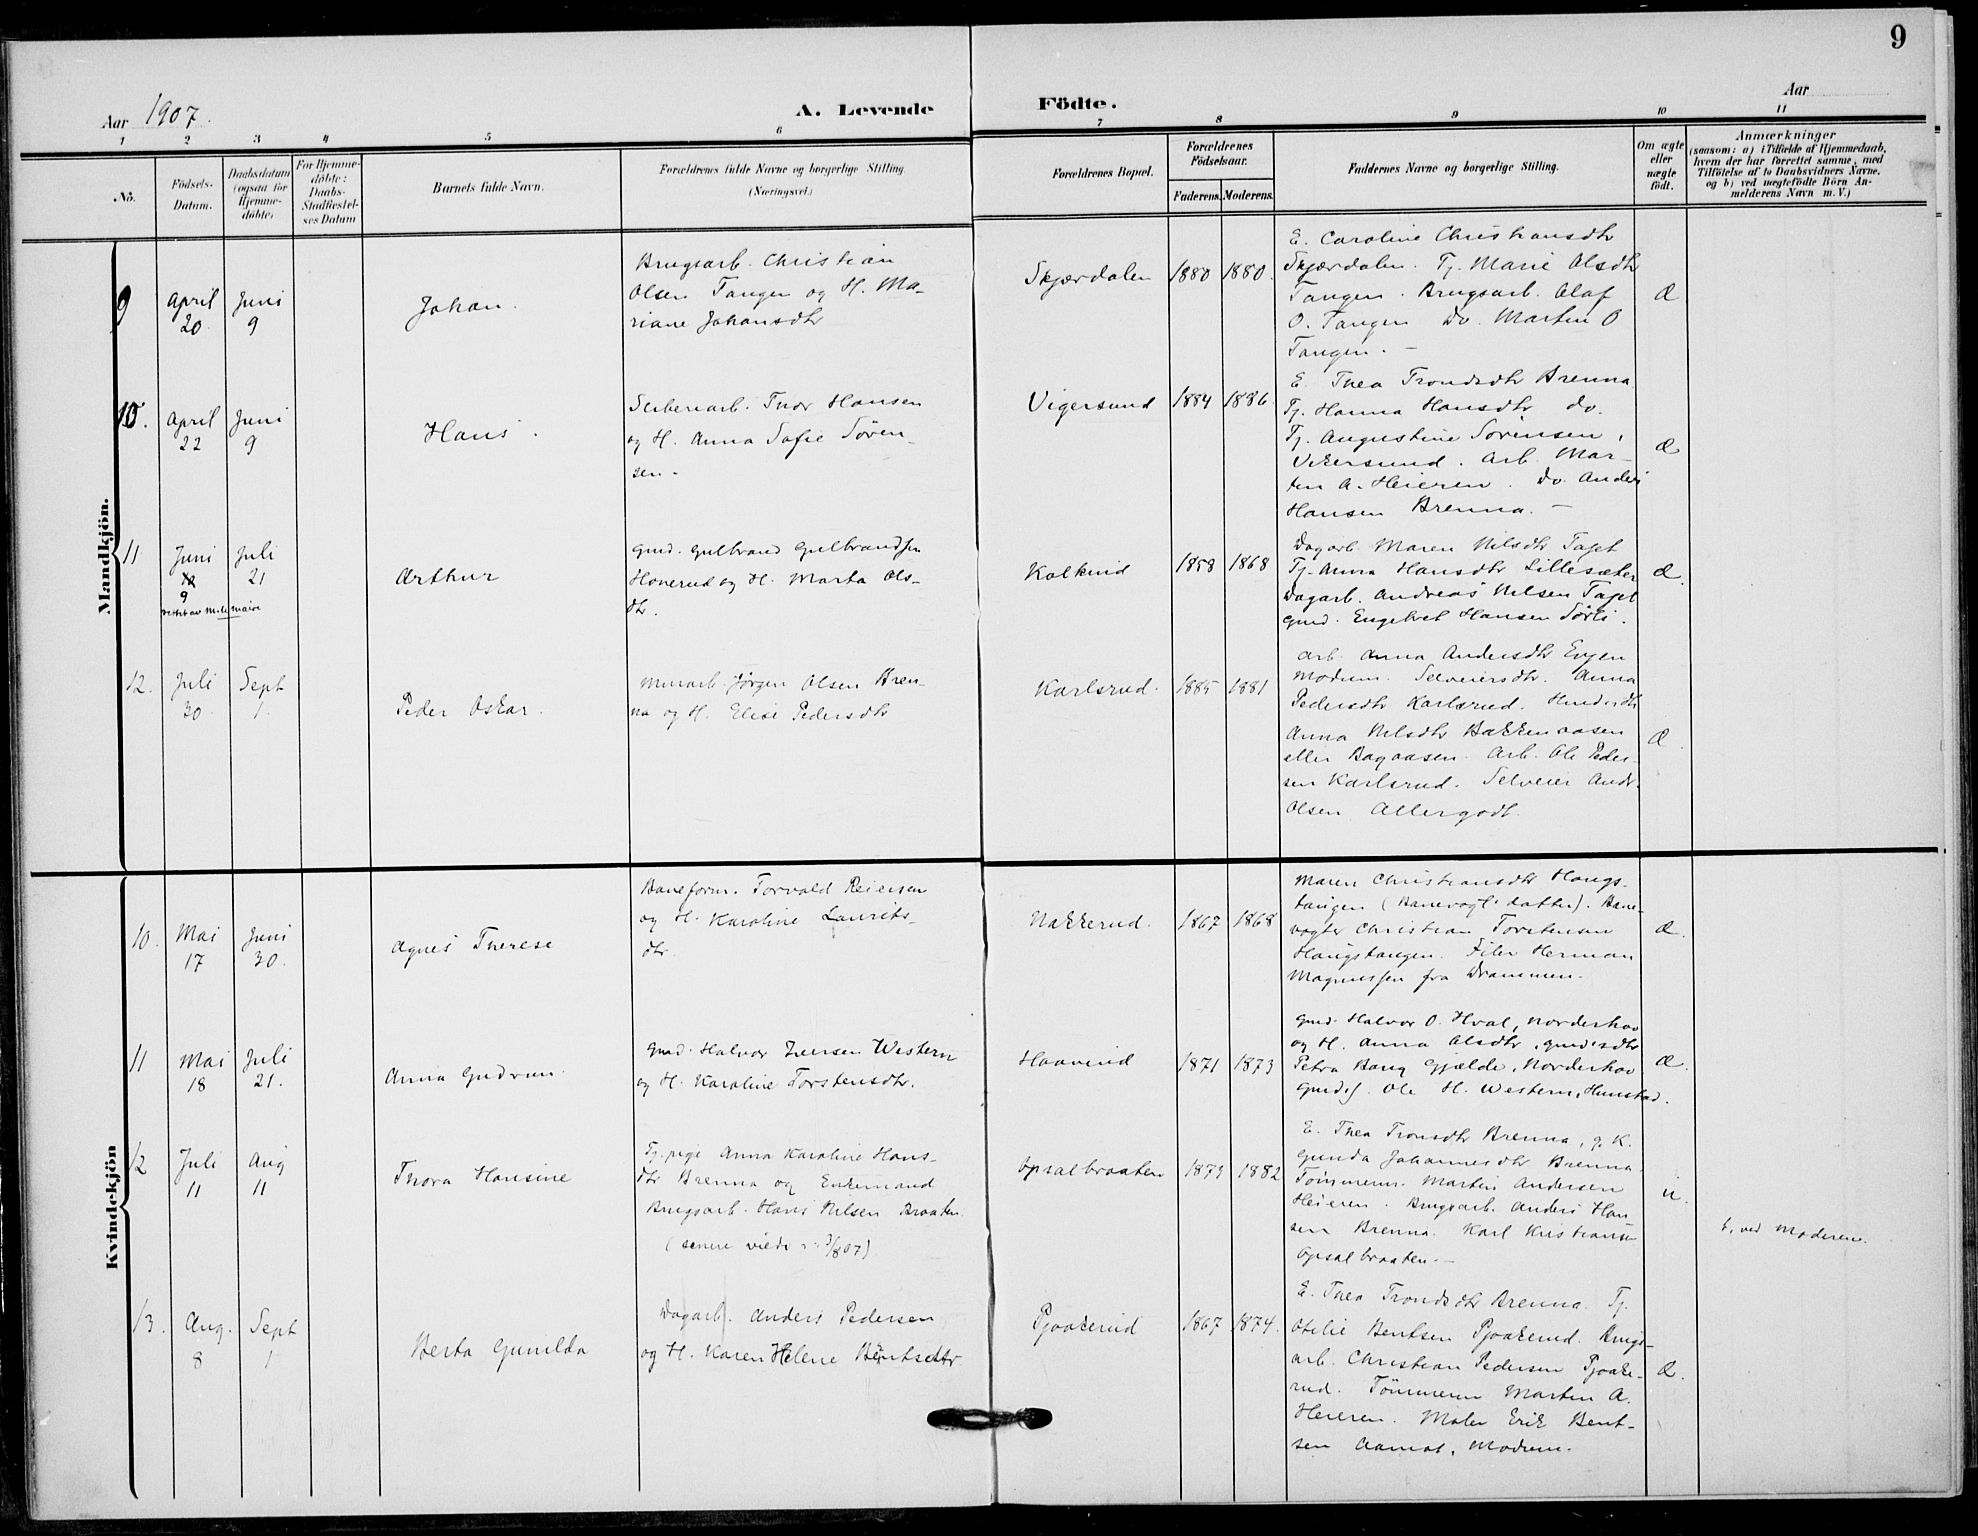 9
Aar 1907.
A. Levende Födte.
Aar
1 2 3 4 5 6 7 8 9 10 11
No.
Födsels-Datum.
Daabsdatum (ogsaa for Hjemme-döbte)
For Hjemme-döbte: Daabs-Stadfæstel-ses Datum
Barnets fulde Navn.
Forældrenes fulde Navne og borgerlige Stilling (Næringsvei.)
Forældrenes Bopæl.
Forældrenes Födselsaar.
Faderens. Moderens.
Faddernes Navne og borgerlige Stilling.
Om ægte eller uægte födt.
Anmærkninger
(saasom: a) i Tilfælde af Hjemmedaab,
hvem der har forrettet samme, med
Tilföielse af to Daabsvidners Navne,
og b) ved uægtefödte Börn An-
melderens Navn m. V.)
Mandkjön.
9
April 20
Juni 9
Johan.
Brugsarb. Christian
Olsen Tangen og H. Ma-
riane Johansdtr
Skjærdalen
1880 1880.
E. Caroline Christiansdtr
Skjærdalen. Tj. Marie Olsdtr
Tangen. Brugsarb. Olaf
O. Tangen Do. Martin O
Tangen. –
Æ
10.
April 22
Juni 9
Hans.
Thor Hansen
og H. Anna Sofie Sören-
sen.
Vigersund
1884 1886
E. Thea Trondsdtr Brenna
Tj. Hanna Hansdtr do.
Tj. Augustine Sörensen,
Vikersund. Arb. Mar-
tin A. Heieren. Do. Anders
Hansen Brenna. –
Æ
11
Juni 9
Juli 21
Arthur
Gmd. Gulbrand Gulbrandsen
Honerud og H. Marta Ols-
dtr.
1858 1868
Dagarb. Maren Nilsdtr Taget
Tj. Anna Hansdtr Lillesæter
Dagarb. Andreas Nilsen Taget
Gmd. Engebret Hansen Sörli.
Æ.
12.
Juli 30.
Sept 1.
Peder Oskar.
Murarb. Jörgen Olsen Bren-
na og H. Elise Pedersdtr
Karlsrud.
1885 1881
Arb. Anna Andersdtr Evjen
Modum. Selveiersdtr. Anna
Pedersdtr Karlsrud.
Anna Nilsdtr Bakkenaasen
eller Bagaasen. Arb. Ole Peder-
sen Karlsrud. Selveier Andr.
Olsen Allergodt.
Æ
Kvindekjön
10.
Mai 17
Juni 30.
Agnes Therese
Baneform. Torvald Reiersen
og H. Karoline Laurits-
dtr.
Nakkerud.
1867 1868
Maren Christiansdtr Haugs-
tangen (Banevogt. datter). Bane-
vogter Christian Torstensen
Haugstangen. Filer Herman
Magnussen fra Drammen.
Æ.
11
Mai 18
Juli 21.
Anna Gudrun.
Gmd. Halvor Jensen Western
og H. Karoline Torstensdtr.
Haaverud
1871 1873
Gmd. Halvor O. Hval, Norderhov
og H. Anna Olsdtr, gmdsdtr
Petra Bang Gjælde, Norderhov
Gmds. Ole H. Western, Hunstad.
Æ.
12
Juli 11
Aug 11
Thora Hansine
Tj.pige Anna Karoline Hans-
dtr Brenna og Enkemand
Brugsarb. Hans Nilsen Braaten.
(senere viede 3/8 07)
Opsalbraaten
1879 1882
E. Thea Tronsdtr Brenna, g. K.
Gunda Johannesdtr Brenna.
Tömmerm. Martin Andersen
Heieren. Brugsarb. Anders Han
sen Brenna. Karl Kristiansen
Opsalbraaten. –
u.
b, ved Moderen.
13.
Aug. 8
Sept 1
Berta Gunilda
Dagarb. Anders Pedersen
og H. Karen Helene Bentsdtr.
Pjaakerud
1867 1874.
E. Thea Trondsdtr Brenna. Tj.
Otelie Bentsen Pjaakerud. Brugs-
arb. Christian Pedersen Pjaake-
rud. Tömmerm Martin A.
Heieren. Maler Erik Bent-
sen Aamot, Modum.
Æ.